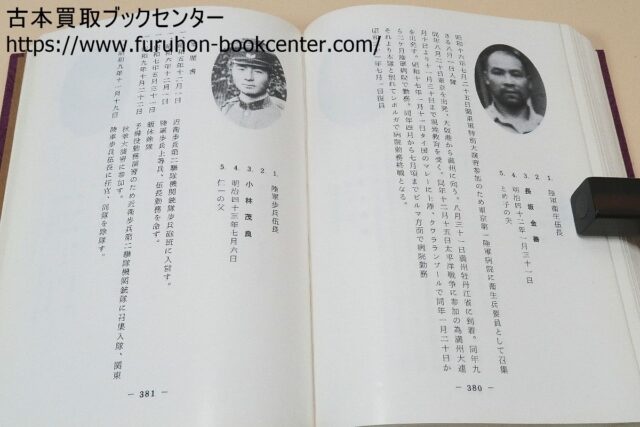 古本買取ブックセンター
https://www.furuhon-bookcenter.com/
1. 陸軍衛生伍長
2.
3. 長坂金善
4. 明治四十二年一月三十一日
5. とめ子の夫
昭和十六年七月二十五日関東軍特別大演習参加のため東京第一陸軍病院に衛生兵要員として召集
さる八月一日入営
同年八月二十日東京を出発、大阪港から満州に向う。八月三十一日満州牡丹江省に到着。同年九
月十日より十一月三十日まで現地教育を受く。同年十二月十五日太平洋戦争に参加の為満州大連
を出発す。昭和十七年一月十日タイ国のマレーに上港、クワラランプールで同年一月二十日か
ら二ヶ月陸軍病院で勤務、同年四月から七月頃までビルマ方面で病院勤務
それより本隊と別れてレボルガで病院勤務終戦となる。
昭和二十一年七月一日復員
— 380 —
1. 陸軍歩兵伍長
2.
3. 小林茂良
4. 明治四十三年七月六日
5. 仁一の父
履書
昭和五年十二月一日 近衛歩兵第二聯隊機関銃隊歩兵砲班に入営す。
昭和六年十二月一日 陸軍歩兵上等兵、伍長勤務を命ず。
昭和七年五月三十一日 帰休除隊
昭和九年十月二十二日 予備役勤務演習のため近衛歩兵第二聯隊機関銃隊に召集入隊、関東
秋季大演習に参加す。
昭和九年十一月十九日 陸軍歩兵伍長に任官、同隊を除隊す。
— 381 —